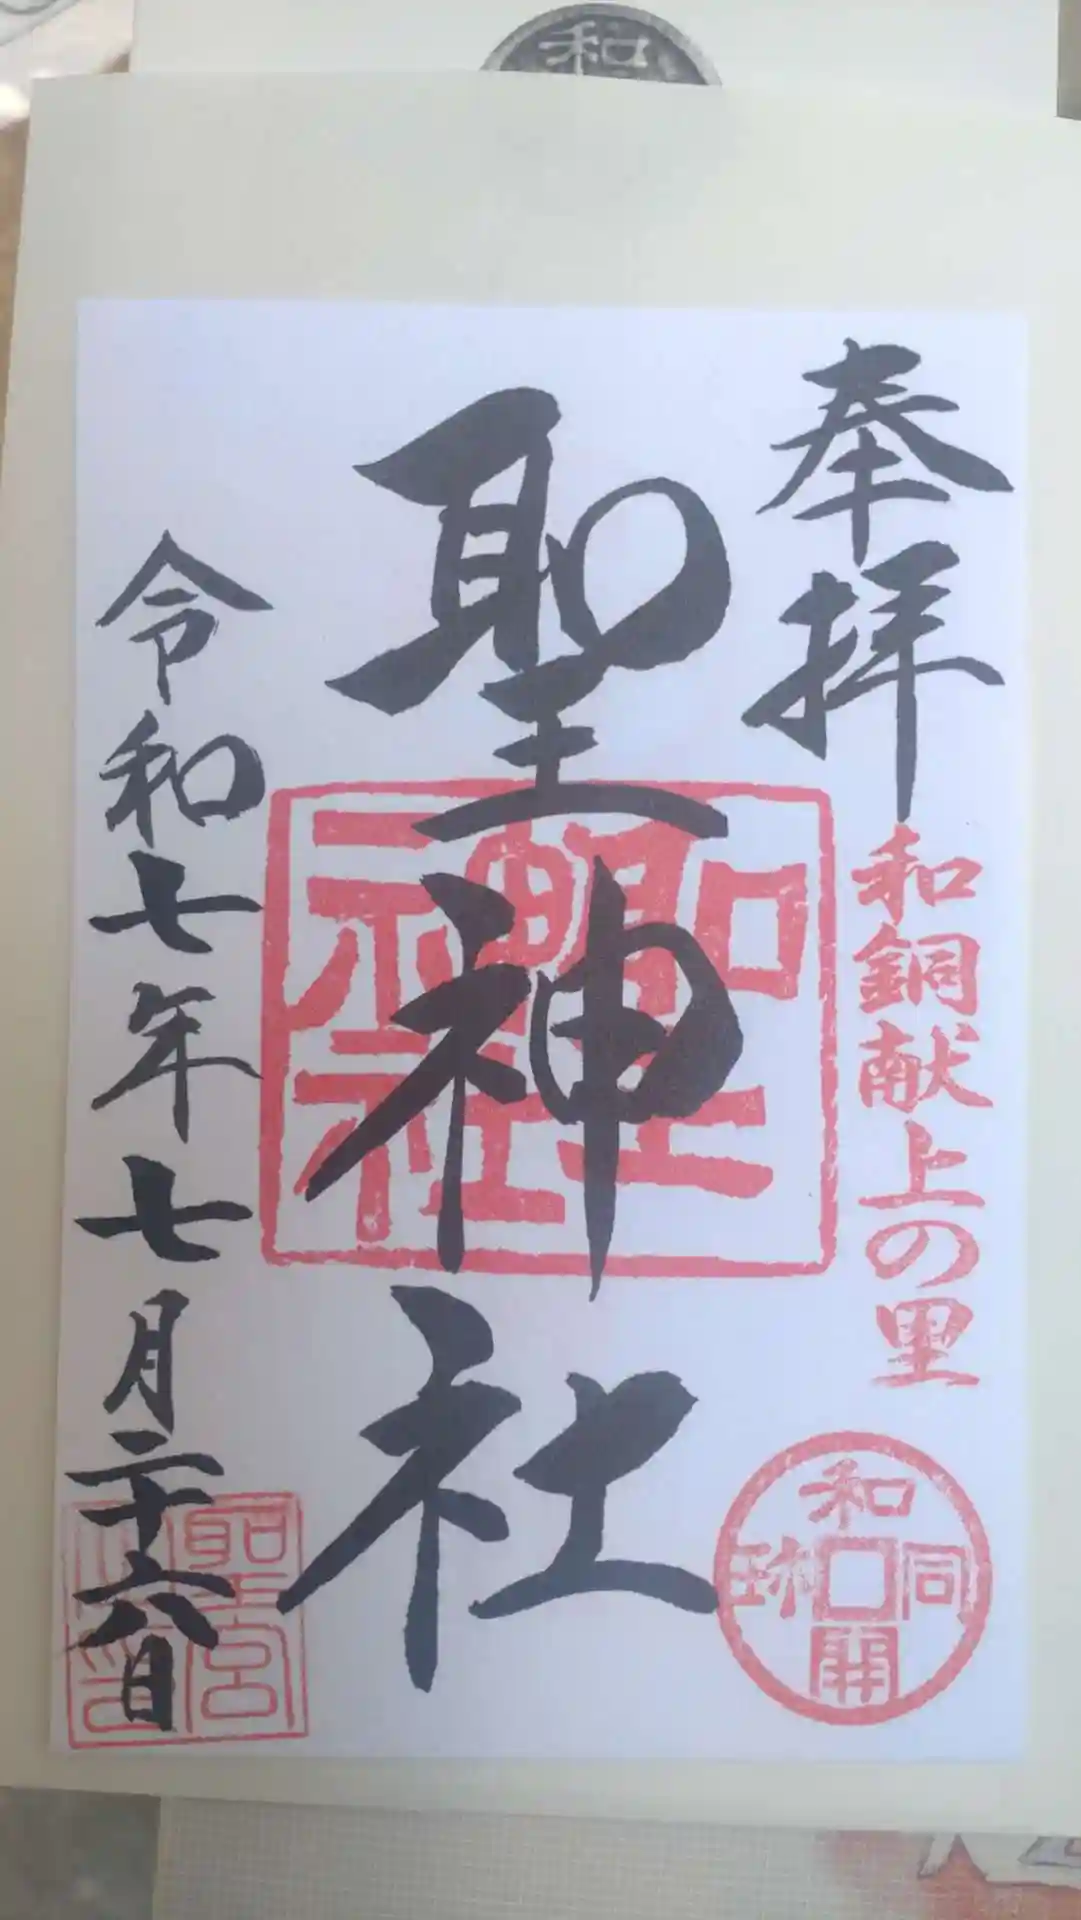 和
奉拝
和銅献上の里
和同開珎
聖神社
聖神社
令和七年七月二十六日
聖宮